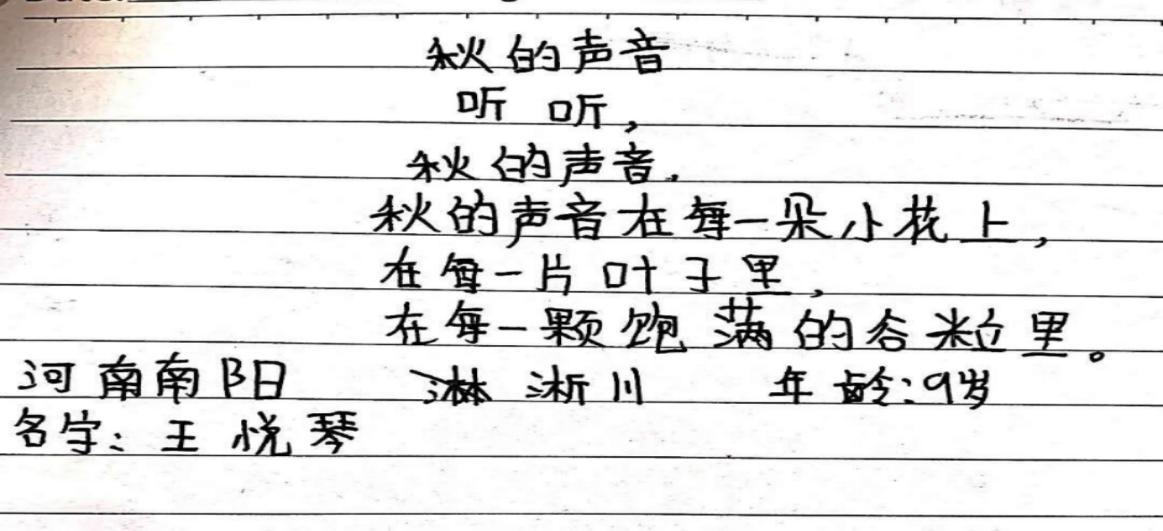 秋的声音
听 听，
秋的声音，
秋的声音在每一朵小花上，
在每一片叶子里，
在每一颗饱满的谷粒里。
河南南阳 淅川 年龄：9岁
名字：王悦琴